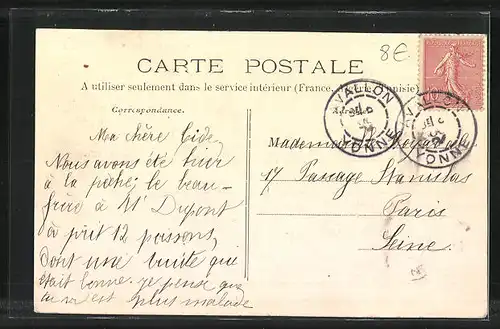 8€
CARTE POSTALE
A utiliser seulement dans le service intérieur (France, Algérie, Tunisie).
Correspondance.
AVALLON
YONNE
AVALLON
YONNE
Ma chère Gide,
Nous avons été hier
à la pêche; le beau-
frère à Mr Dupont
à prit 12 poissons,
dont une truite qui
était bonne. je pense que
tu est plus malade
Mademoiselle
17 Passage Stanislas
Paris
Seine.